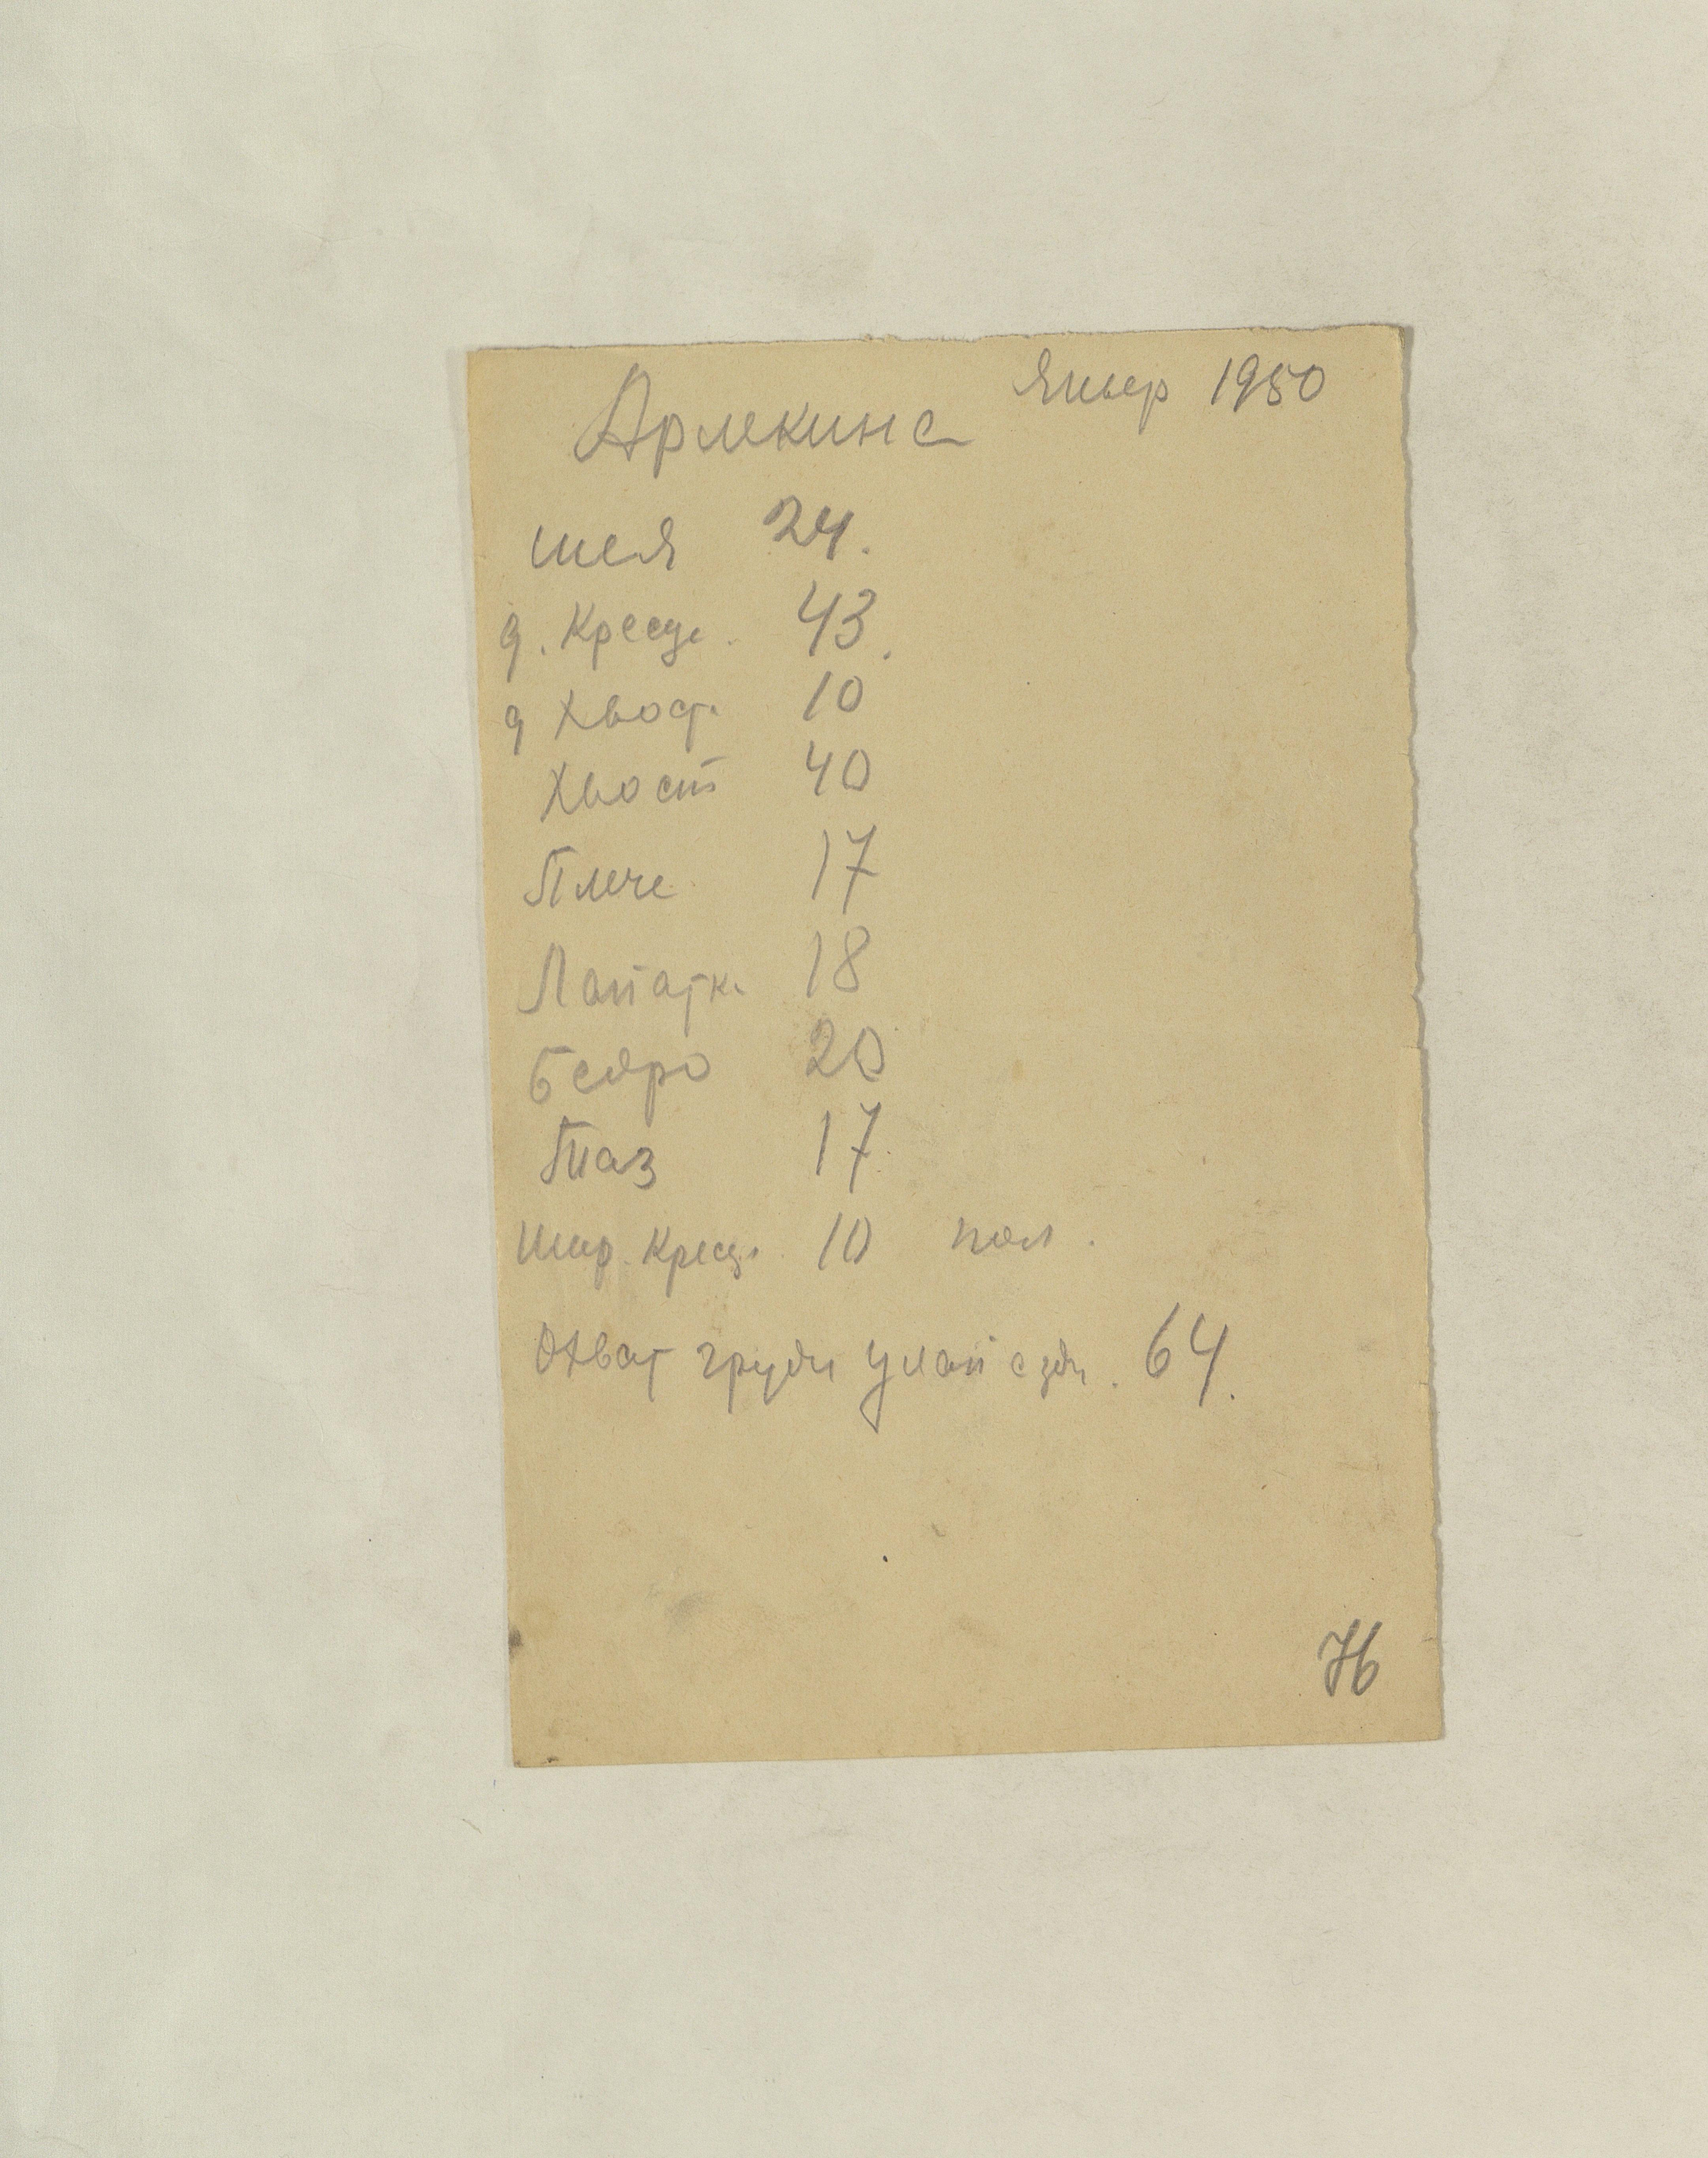 Январ 1950
Арлекина
шея 24.
д. Крестц. 43.
д Хвост. 10
Хвост 40
Плече 17
Лапатк. 18
бедро 20
Таз 17
Шир. Крест. 10 пол.
Охват груди у лап сзди. 64.
76